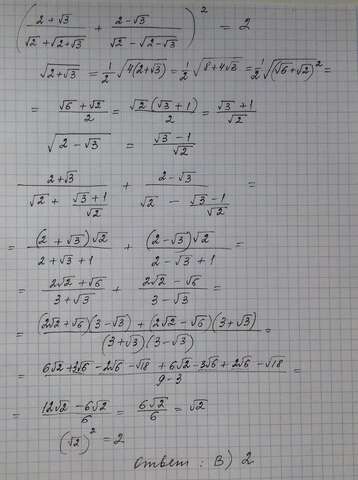 ((2 + √3)/(√2 + √(2+√3)) + (2 - √3)/(√2 - √(2-√3)))² = 2
√(2+√3) = 1/2 √(4(2+√3)) = 1/2 √(8+4√3) = 1/2 √((√6+√2)²) =
= (√6 + √2)/2 = (√2(√3+1))/2 = (√3+1)/√2
√(2-√3) = (√3-1)/√2
(2+√3)/(√2 + (√3+1)/√2) + (2-√3)/(√2 - (√3-1)/√2) =
= ((2+√3)√2)/(2+√3+1) + ((2-√3)√2)/(2-√3+1) =
= (2√2+√6)/(3+√3) + (2√2-√6)/(3-√3) =
= ((2√2+√6)(3-√3) + (2√2-√6)(3+√3))/((3+√3)(3-√3)) =
= (6√2+3√6-2√6-√18+6√2-3√6+2√6-√18)/(9-3) =
= (12√2-6√2)/6 = (6√2)/6 = √2
(√2)² = 2
Ответ: В) 2